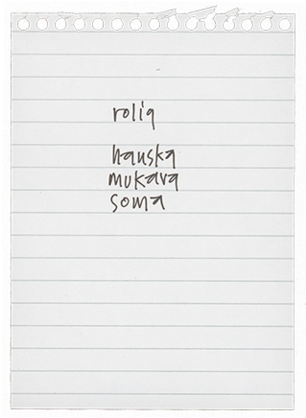 rolig
hauska
mukava
soma